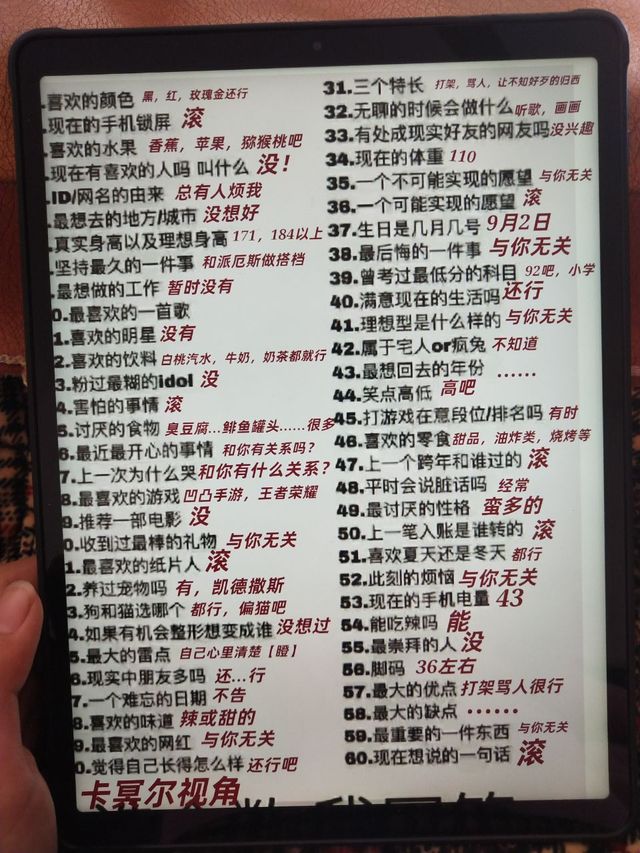 .喜欢的颜色 黑，红，玫瑰金还行
.现在的手机锁屏 滚
.喜欢的水果 香蕉，苹果，猕猴桃吧
.现在有喜欢的人吗 叫什么 没！
.ID/网名的由来 总有人烦我
.最想去的地方/城市 没想好
.真实身高以及理想身高 171，184以上
.坚持最久的一件事 和派厄斯做搭档
.最想做的工作 暂时没有
0.最喜欢的一首歌
1.喜欢的明星 没有
2.喜欢的饮料 白桃汽水，牛奶，奶茶都就行
3.粉过最糊的idol 没
4.害怕的事情 滚
5.讨厌的食物 臭豆腐…鲱鱼罐头……很多
6.最近最开心的事情 和你有关系吗？
7.上一次为什么哭 和你有什么关系？
8.最喜欢的游戏 凹凸手游，王者荣耀
9.推荐一部电影 没
0.收到过最棒的礼物 与你无关
1.最喜欢的纸片人 滚
2.养过宠物吗 有，凯德撒斯
3.狗和猫选哪个 都行，偏猫吧
4.如果有机会整形想变成谁 没想过
5.最大的雷点 自己心里清楚【瞪】
6.现实中朋友多吗 还…行
7.一个难忘的日期 不告
8.喜欢的味道 辣或甜的
9.最喜欢的网红 与你无关
0.觉得自己长得怎么样 还行吧
卡翼尔视角
31.三个特长 打架，骂人，让不知好歹的归西
32.无聊的时候会做什么 听歌，画画
33.有处成现实好友的网友吗 没兴趣
34.现在的体重 110
35.一个不可能实现的愿望 与你无关
36.一个可能实现的愿望 滚
37.生日是几月几号 9月2日
38.最后悔的一件事 与你无关
39.曾考过最低分的科目 92吧，小学
40.满意现在的生活吗 还行
41.理想型是什么样的 与你无关
42.属于宅人or疯兔 不知道
43.最想回去的年份 ……
44.笑点高低 高吧
45.打游戏在意段位/排名吗 有时
46.喜欢的零食 甜品，油炸类，烧烤等
47.上一个跨年和谁过的 滚
48.平时会说脏话吗 经常
49.最讨厌的性格 蛮多的
50.上一笔入账是谁转的 滚
51.喜欢夏天还是冬天 都行
52.此刻的烦恼 与你无关
53.现在的手机电量 43
54.能吃辣吗 能
55.最崇拜的人 没
56.脚码 36左右
57.最大的优点 打架骂人很行
58.最大的缺点 ……
59.最重要的一件东西 与你无关
60.现在想说的一句话 滚